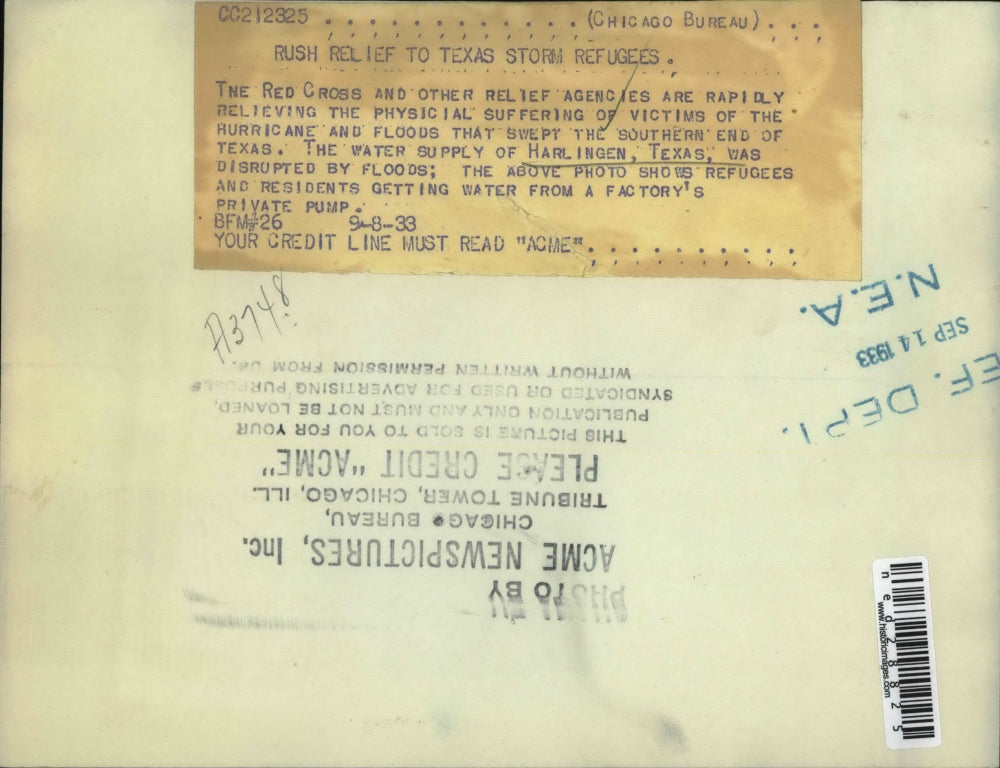 CC212325 . . . . . . . . . . . . . (CHICAGO BUREAU) . . .
RUSH RELIEF TO TEXAS STORM REFUGEES.
THE RED CROSS AND OTHER RELIEF AGENCIES ARE RAPIDLY
RELIEVING THE PHYSICIAL SUFFERING OF VICTIMS OF THE
HURRICANE AND FLOODS THAT SWEPT THE SOUTHERN END OF
TEXAS. THE WATER SUPPLY OF HARLINGEN, TEXAS, WAS
DISRUPTED BY FLOODS; THE ABOVE PHOTO SHOWS REFUGEES
AND RESIDENTS GETTING WATER FROM A FACTORY'S
PRIVATE PUMP.
BFM#26 9-8-33
YOUR CREDIT LINE MUST READ "ACME". . . . . . . . . .
A3748
N.E.A.
SEP 14 1933
EF. DEPT.
PHOTO BY
ACME NEWSPICTURES, Inc.
CHICAGO BUREAU,
TRIBUNE TOWER, CHICAGO, ILL.
PLEASE CREDIT "ACME"
THIS PICTURE IS SOLD TO YOU FOR YOUR
PUBLICATION ONLY AND MUST NOT BE LOANED,
SYNDICATED OR USED FOR ADVERTISING PURPOSES
WITHOUT WRITTEN PERMISSION FROM US.
ned28825
www.historicimages.com